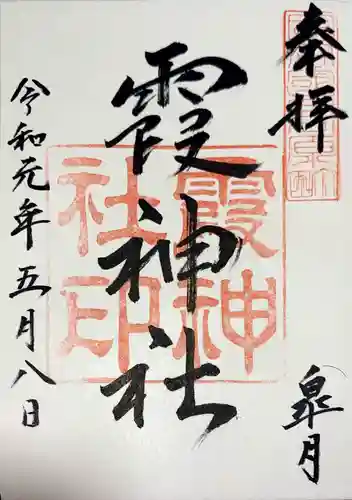 奉拝
皐月
霞神社
霞神
社印
令和元年五月八日